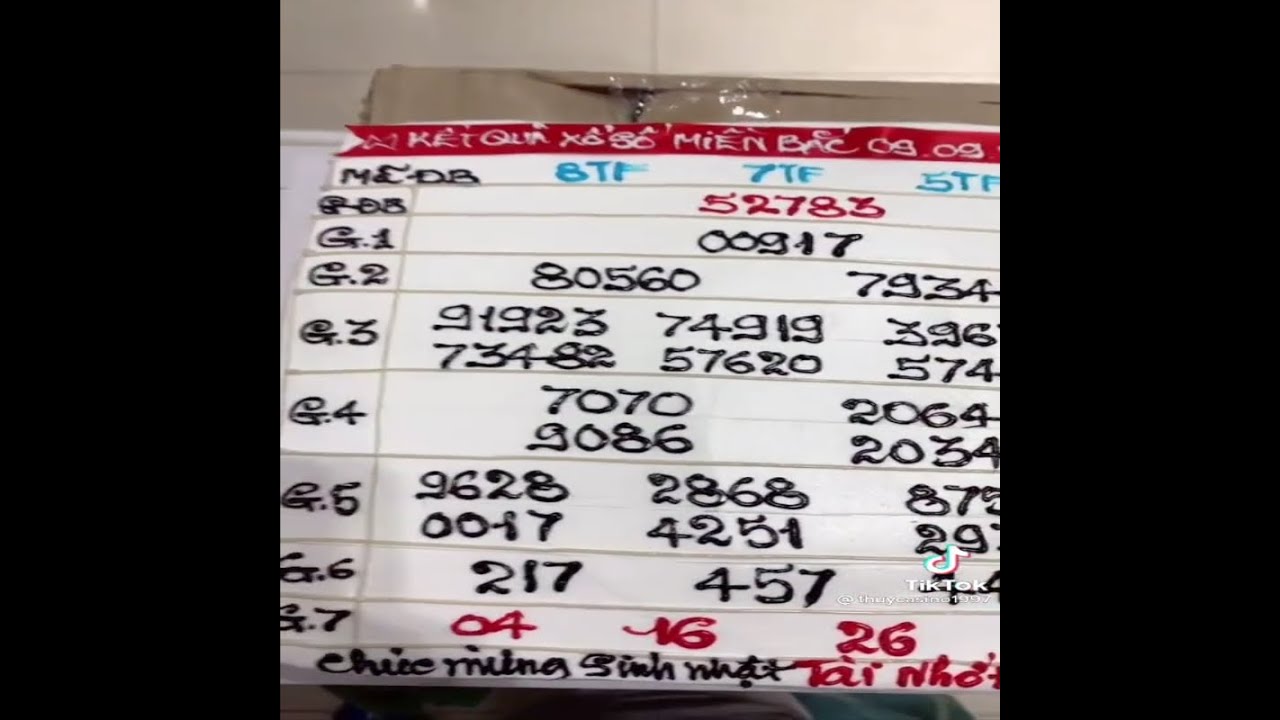 KẾT QUẢ XỔ SỐ MIỀN BẮC 09.09.
MÃ ĐB 8TF 7TF 5TF
G.ĐB 52783
G.1 00917
G.2 80560 7934
G.3 91923 74919 396
73482 57620 574
G.4 7070 2064
9086 2034
G.5 9628 2868 875
0017 4251 297
G.6 217 457
G.7 04 16 26
Chúc mừng Sinh nhật Tài Nhớt
TikTok